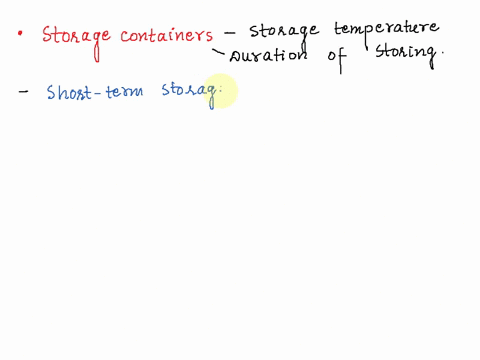 • Storage containers – Storage temperature
Duration of Storing.
– Short-term Storag